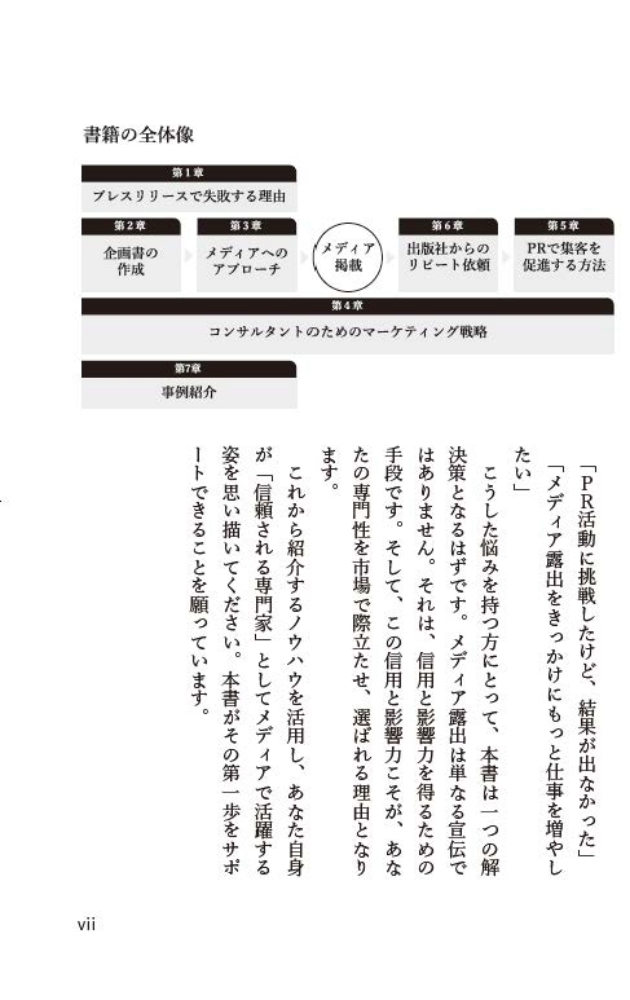 書籍の全体像
第1章
プレスリリースで失敗する理由
第2章
企画書の
作成
第3章
メディアへの
アプローチ
メディア
掲載
第6章
出版社からの
リピート依頼
第5章
PRで集客を
促進する方法
第4章
コンサルタントのためのマーケティング戦略
第7章
事例紹介
「PR活動に挑戦したけど、結果が出なかった」
「メディア露出をきっかけにもっと仕事を増やし
たい」
こうした悩みを持つ方にとって、本書は一つの解
決策となるはずです。メディア露出は単なる宣伝で
はありません。それは、信用と影響力を得るための
手段です。そして、この信用と影響力こそが、あな
たの専門性を市場で際立たせ、選ばれる理由となり
ます。
これから紹介するノウハウを活用し、あなた自身
が「信頼される専門家」としてメディアで活躍する
姿を思い描いてください。本書がその第一歩をサポ
ートできることを願っています。
vii